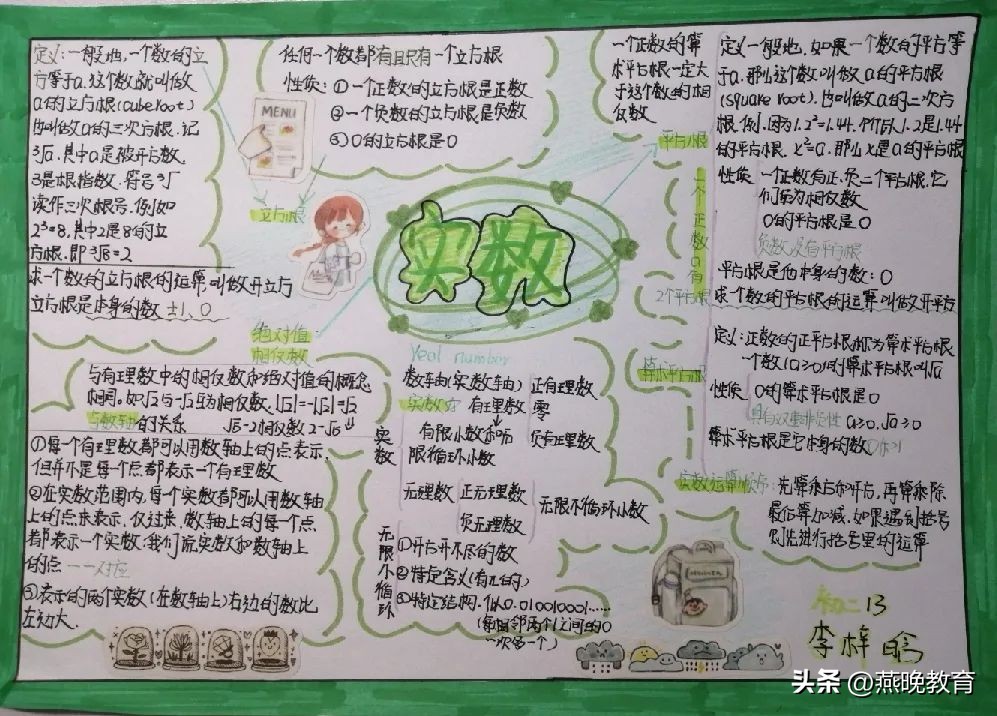 定义:一般地,一个数的立
方等于a,这个数就叫做
a的立方根(cube root)
也叫做a的三次方根.记
³√a.其中a是被开方数,
3是根指数.符号³√
读作三次根号.例如
2³=8,其中2是8的立
方根.即³√8=2
求一个数的立方根的运算叫做开立方
立方根是本身的数 ±1、0
任何一个数都有且只有一个立方根
性质:①一个正数的立方根是正数
②一个负数的立方根是负数
③0的立方根是0
MENU
立方根
实数
一个正数的算
术平方根一定大
于这个数的相
反数
平方根
一个正数a有
2个平方根
定义一般地,如果一个数的平方等
于a.那么这个数叫做a的平方根
(square root).也叫做a的二次方
根.例.因为1.2²=1.44.所以1.2是1.44
的平方根.x²=a.那么x是a的平方根
性质 一个正数有正、负二个平方根.它
们互为相反数
0的平方根是0
负数没有平方根
平方根是他本身的数:0
求一个数的平方根的运算叫做开平方
算术平方根
定义:正数的正平方根称为算术平方根.
一个数(a≥0)的算术平方根叫√a
性质 0的算术平方根是0
具有双重非负性 a≥0.√a≥0
算术平方根是它本身的数 0和1
绝对值
相反数
与有理数中的相反数和绝对值的概念
相同.如√2与-√2互为相反数.|√2|=|-√2|=√2
√5-2相反数2-√5
与数轴的关系
①每一个有理数都可以用数轴上的点表示,
但并不是每个点都表示一个有理数
②在实数范围内,每个实数都可以用数轴
上的点来表示.反过来,数轴上的每一个点
都表示一个实数:我们说实数和数轴上
的点一一对应
③表示的两个实数(在数轴上)右边的数比
左边大.
real number
数轴(实数轴)
实数
有理数
正有理数
零
负有理数
有限小数和
限循环小数
无理数
正无理数
负无理数
无限不循环小数
无限小循环
①开方开不尽的数
②特定含义(有π的)
③特定结构.似0.010010001……
(每相邻两个1之间的0
一次多一个)
实数运算顺序:先算乘方和开方,再算乘除
最后算加减.如果遇到括号
则先进行括号里的运算
初二13
李梓晗
头条 @燕晚教育